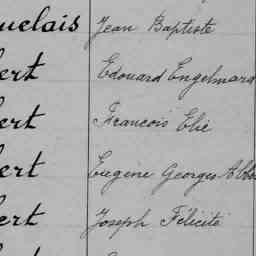 uelais Jean Baptiste
ert Edouard Engelmard
ert Francois Elie
ert Eugène Georges Albe
ert Joseph Félicité